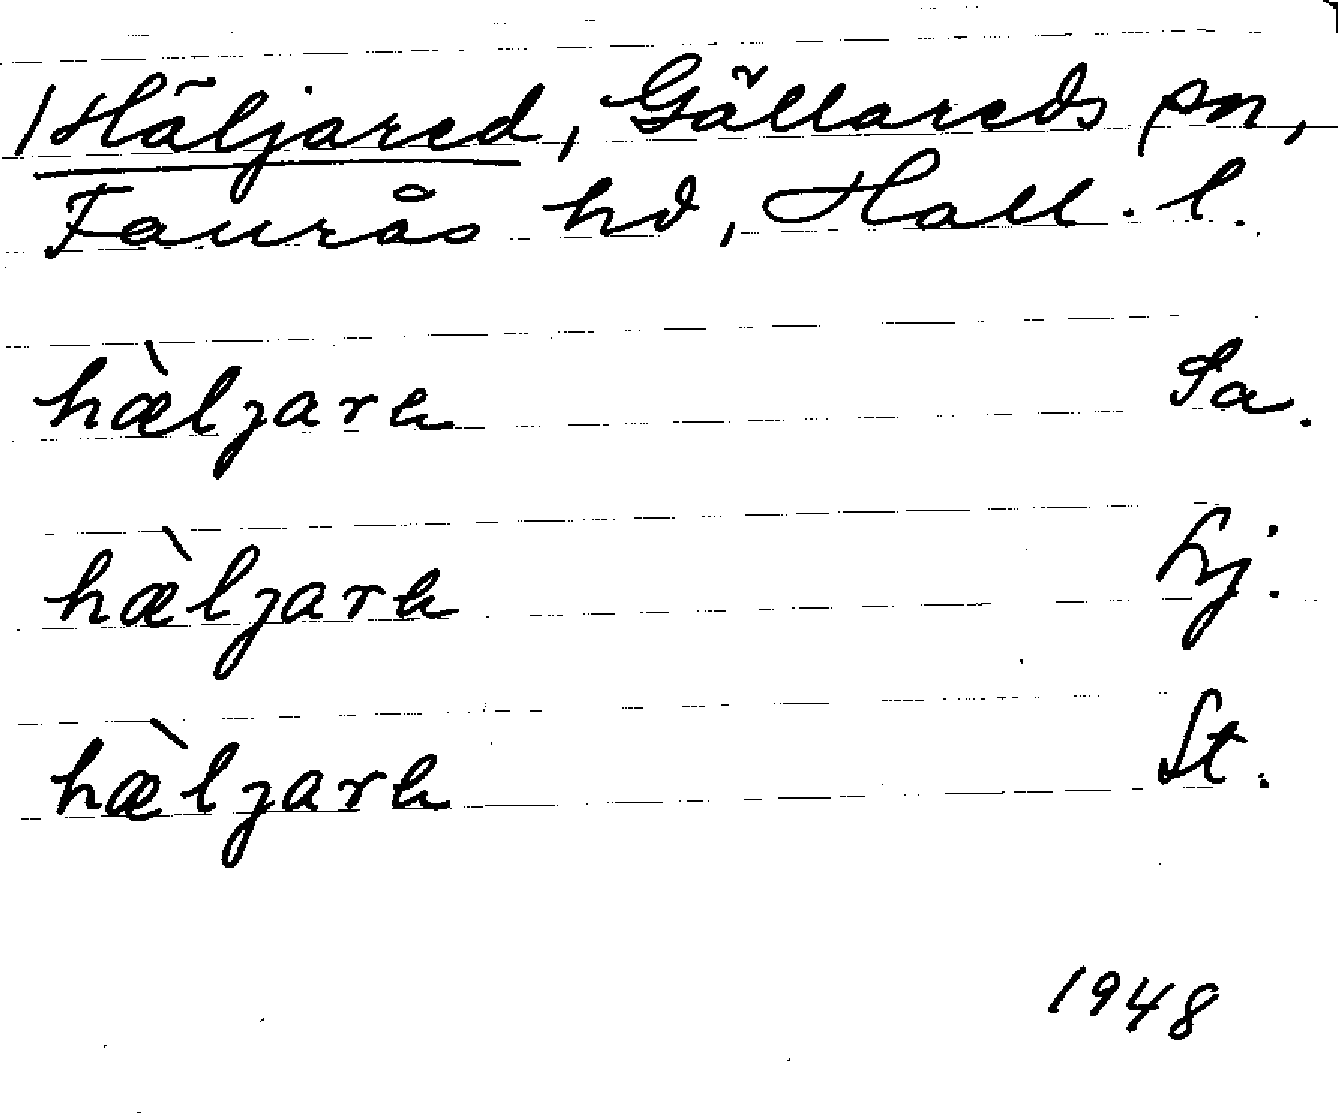 1 Häljared, Gällareds sn,
Faurås hd, Hall. l.
hæ̀ljarɐ Sa.
hæ̀ljarɐ Lj.
hæ̀ljarɐ St.
1948